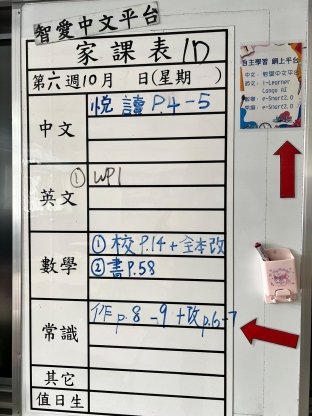 智愛中文平台
家課表 1D
第六週10月 日(星期 )
中文 悅讀 P.4-5
英文 ① WP1
數學 ① 校 P.14 + 全本改
② 書 P.58
常識 作 p.8-9 + 改 p.6-7
其它
值日生
自主學習 網上平台
中文：智愛中文平台
英文：i-Learner
Longo AI
數學：e-Smart2.0
常識：e-Smart2.0